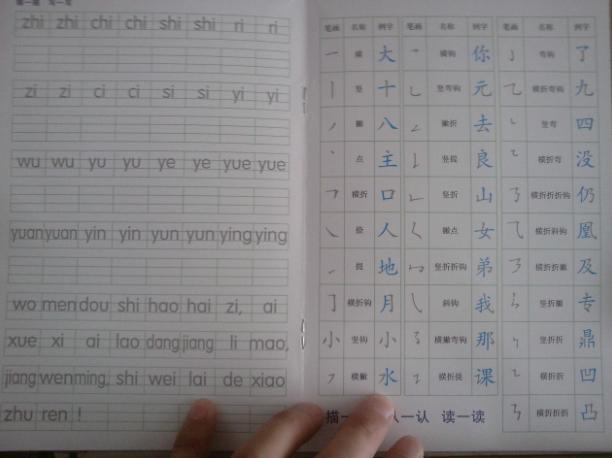 zhi zhi chi chi shi shi ri ri
zi zi ci ci si si yi yi
wu wu yu yu ye ye yue yue
yuan yuan yin yin yun yun ying ying
wo men dou shi hao hai zi, ai
xue xi ai lao dang jiang li mao,
jiang wen ming, shi wei lai de xiao
zhu ren !
笔画 名称 例字 笔画 名称 例字 笔画 名称 例字
一 横 大 横钩 你 亅 弯钩 了
丨 竖 十 乚 竖弯钩 元 乙 横折弯钩 九
丿 撇 八 撇折 去 竖弯 四
丶 点 主 竖提 良 横折弯 没
横折 口 竖折 山 横折折折钩 仍
捺 人 撇点 女 横折斜钩 凰
提 地 竖折折钩 弟 横折折撇 及
横折钩 月 斜钩 我 竖折撇 专
小 竖钩 小 横撇弯钩 那 竖折折 鼎
横撇 水 横折提 课 横折折 凹
横折折折 凸
描一 认一认 读一读